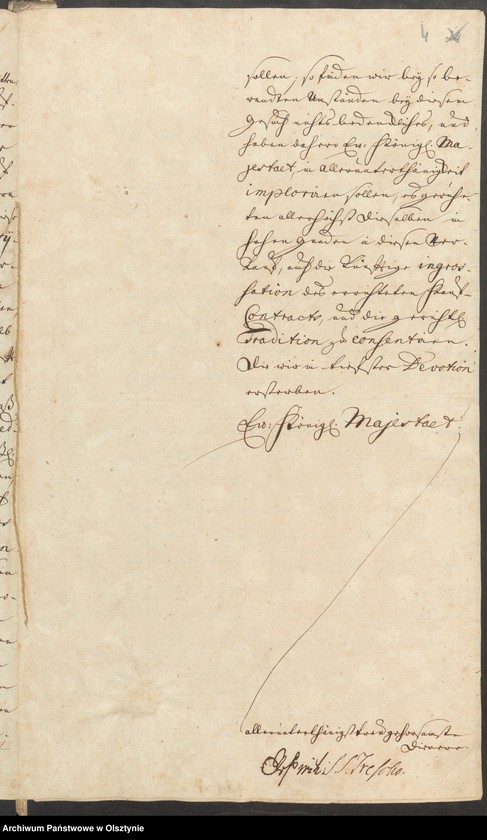 4
sollen; so finden wir bey so be-
wandten Umständen bey diesem
Gesuch nichts bedenckliches, und
haben dahero Ew. Königl. Ma-
jestaet, in allerunterthänigkeit
imploriren sollen, es geruhe-
ten allerhöchst Dieselben, in
hohen Gnaden in diesen Ver-
kauf, auch die künftige ingros-
sation des errichteten Kauf-
Contracts, und die gerichtl
Tradition zu consentiren.
Die wir in tiefster Devotion
ersterben.
Ew: Königl. Majestaet.
allerunterthänigst treu gehorsamste
Diener
Archiwum Państwowe w Olsztynie